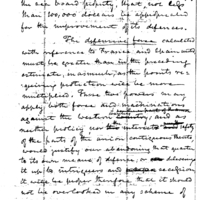 the sea board properly, that not less
than 100,000 dollars is appropriated
for the improvement of its defences.
The defensive force calculated
with reference to France and Spain united
must be greater than in the preceding
estimate, in as much, as the points re-
quiring protection will be more
multiplied. These two powers may
apply both force and
against the western country, and as
neither policy nor the interest
parts of the union contiguous thereto
would justify our abandoning that quarter
to its own means of defence, or leaving
it up to intrigues and
it will be proper therefore that it should
not be overlooked in any scheme of